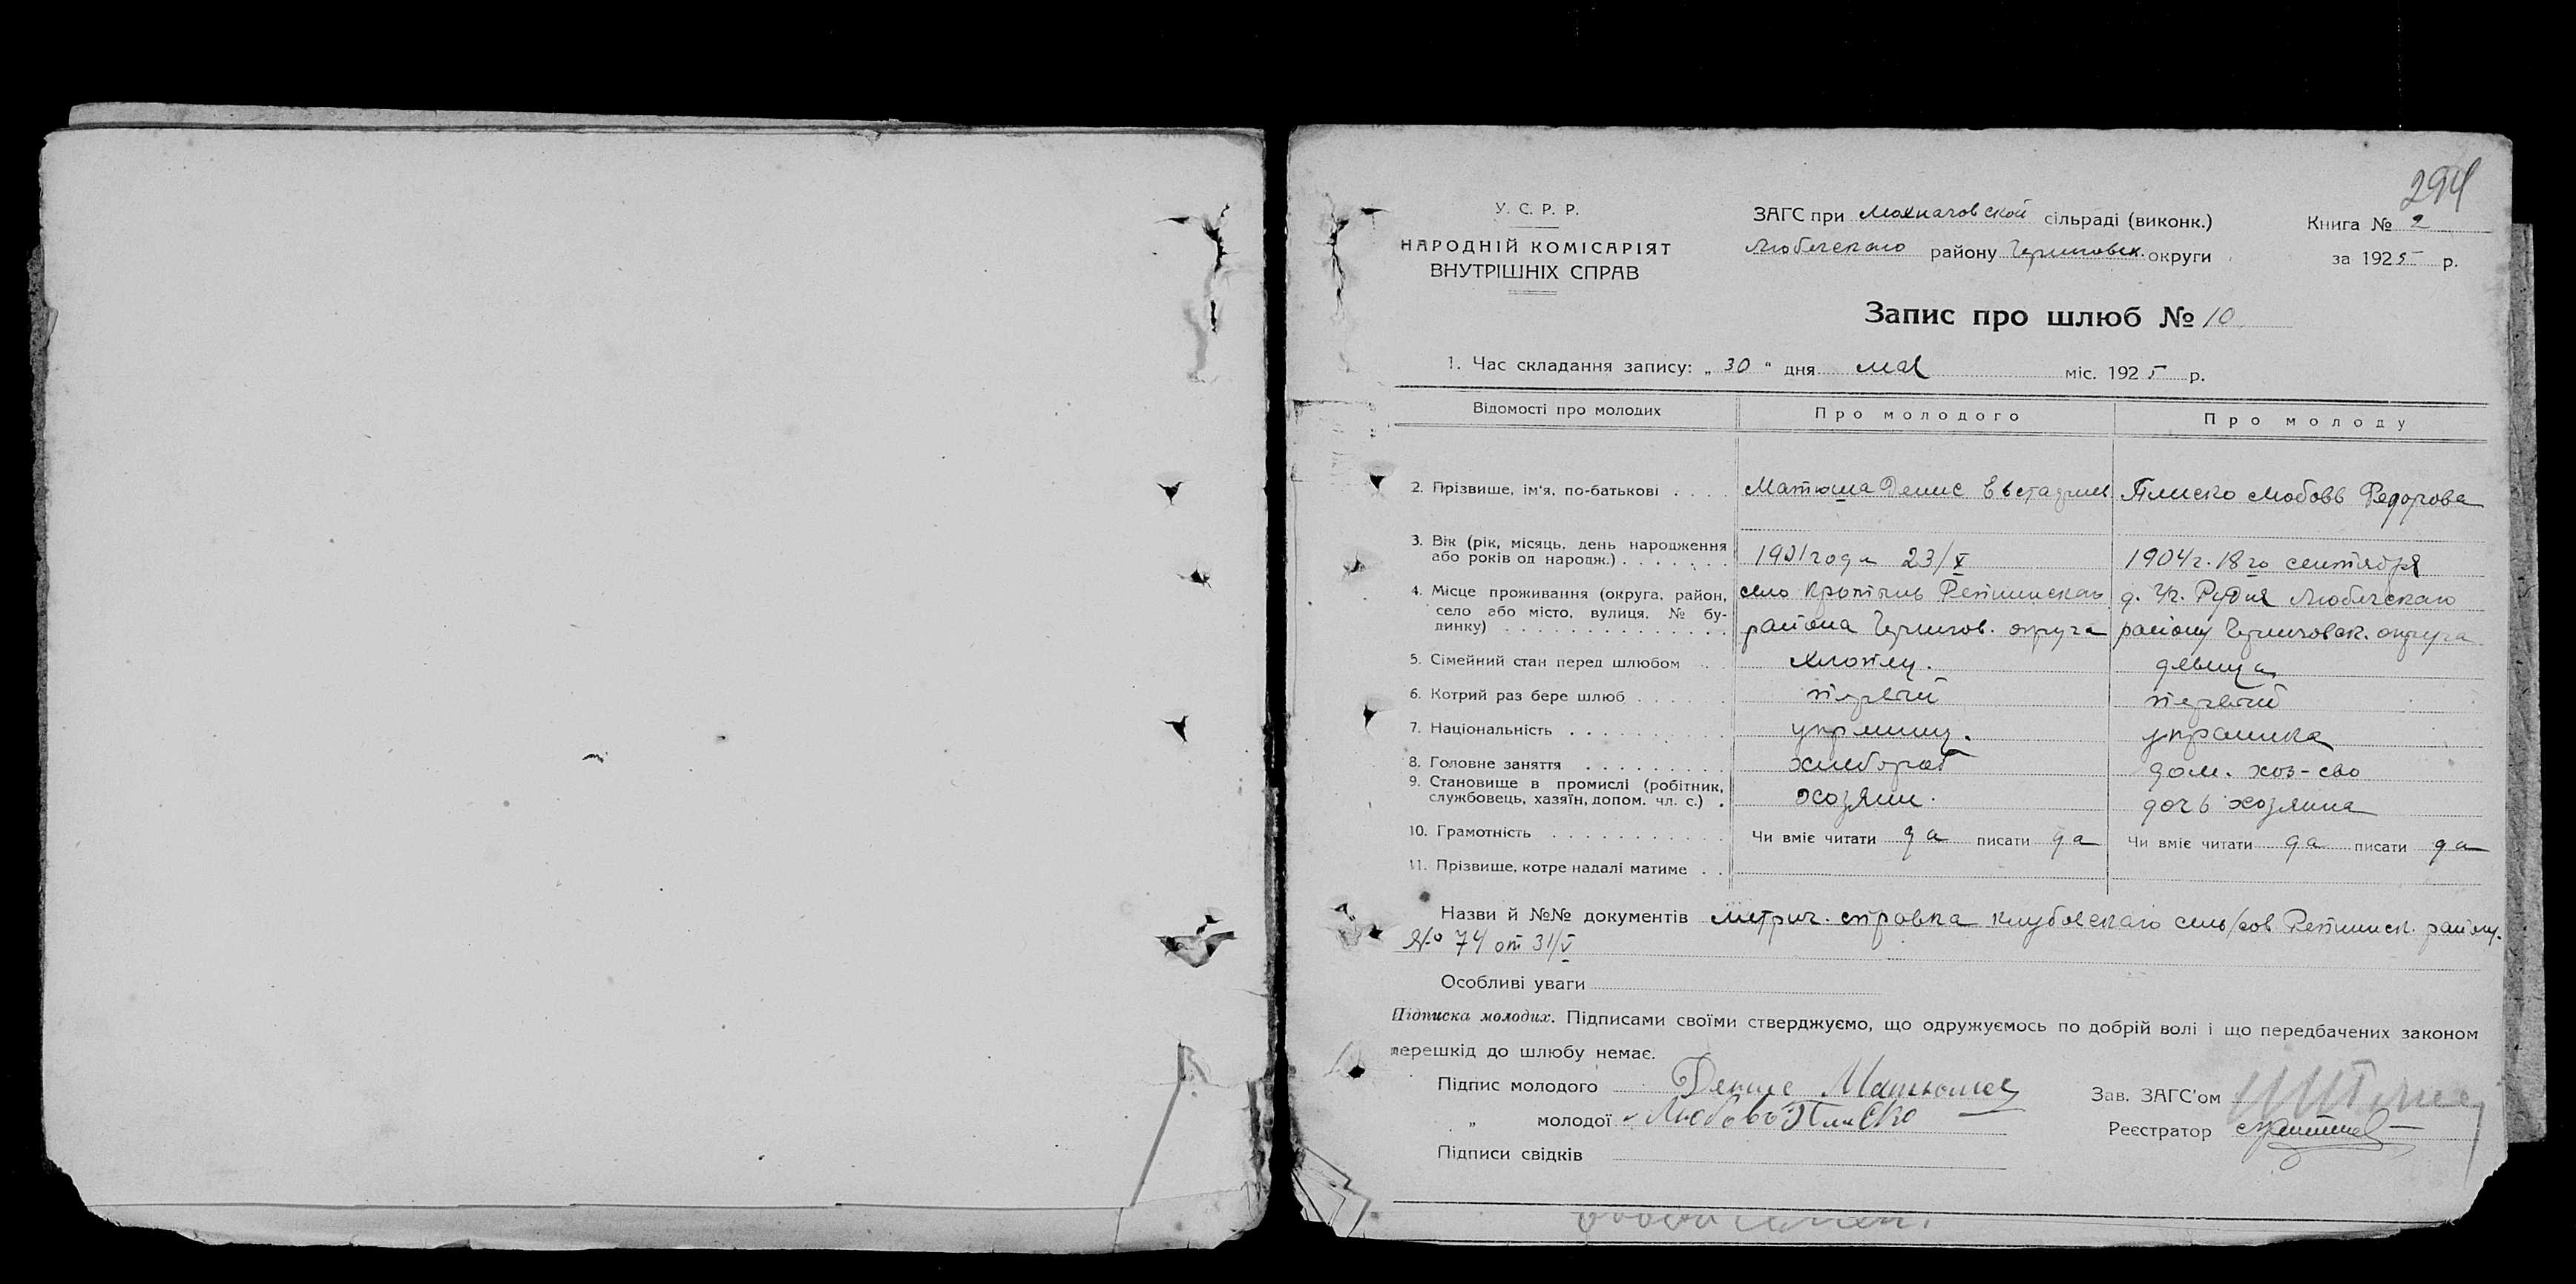 294
У. С. Р. Р.
НАРОДНІЙ КОМІСАРІЯТ
ВНУТРІШНІХ СПРАВ
ЗАГС при Мохначовской сільраді (виконк.)
Любечскаго району Черниговск. округи
Книга № 2
за 1925 р.
Запис про шлюб № 10
1. Час складання запису: „ 30 “ дня мая міс. 1925 р.
Відомості про молодих Про молодого Про молоду
2. Прізвище, ім'я, по-батькові . . . . Матюша Денис Евстафиев Плиско Любовь Федорова
3. Вік (рік, місяць, день народження
або років од народж.) . . . . . . . 1901 года 23/X 1904 г. 18го сентября
4. Місце проживання (округа, район, село Репкинскаго д. Рудня Любечскаго
село або місто, вулиця, № бу-
динку) . . . . . . . . . . . . . . района Чернигов. округа району Черниговск. округа
5. Сімейний стан перед шлюбом . . девица
6. Котрий раз бере шлюб . . . . . . первый первый
7. Національність . . . . . . . . . . украинка
8. Головне заняття . . . . . . . . . хлебороб дом. хоз-сво
9. Становище в промислі (робітник,
службовець, хазяїн, допом. чл. с.) . хозяин. дочь хозяина
10. Грамотність . . . . . . . . . . . Чи вміє читати да писати да Чи вміє читати да писати да
11. Прізвище, котре надалі матиме . .
Назви й №№ документів метрич. справка Клубовскаго сель/сов Репкинск. району.
№ 74 от 31/V
Особливі уваги
Підписка молодих. Підписами своїми стверджуємо, що одружуємось по добрій волі і що передбачених законом
перешкід до шлюбу немає.
Підпис молодого Денис Матюша
„ молодої Любовь Плиско
Підписи свідків
Зав. ЗАГС'ом
Реєстратор